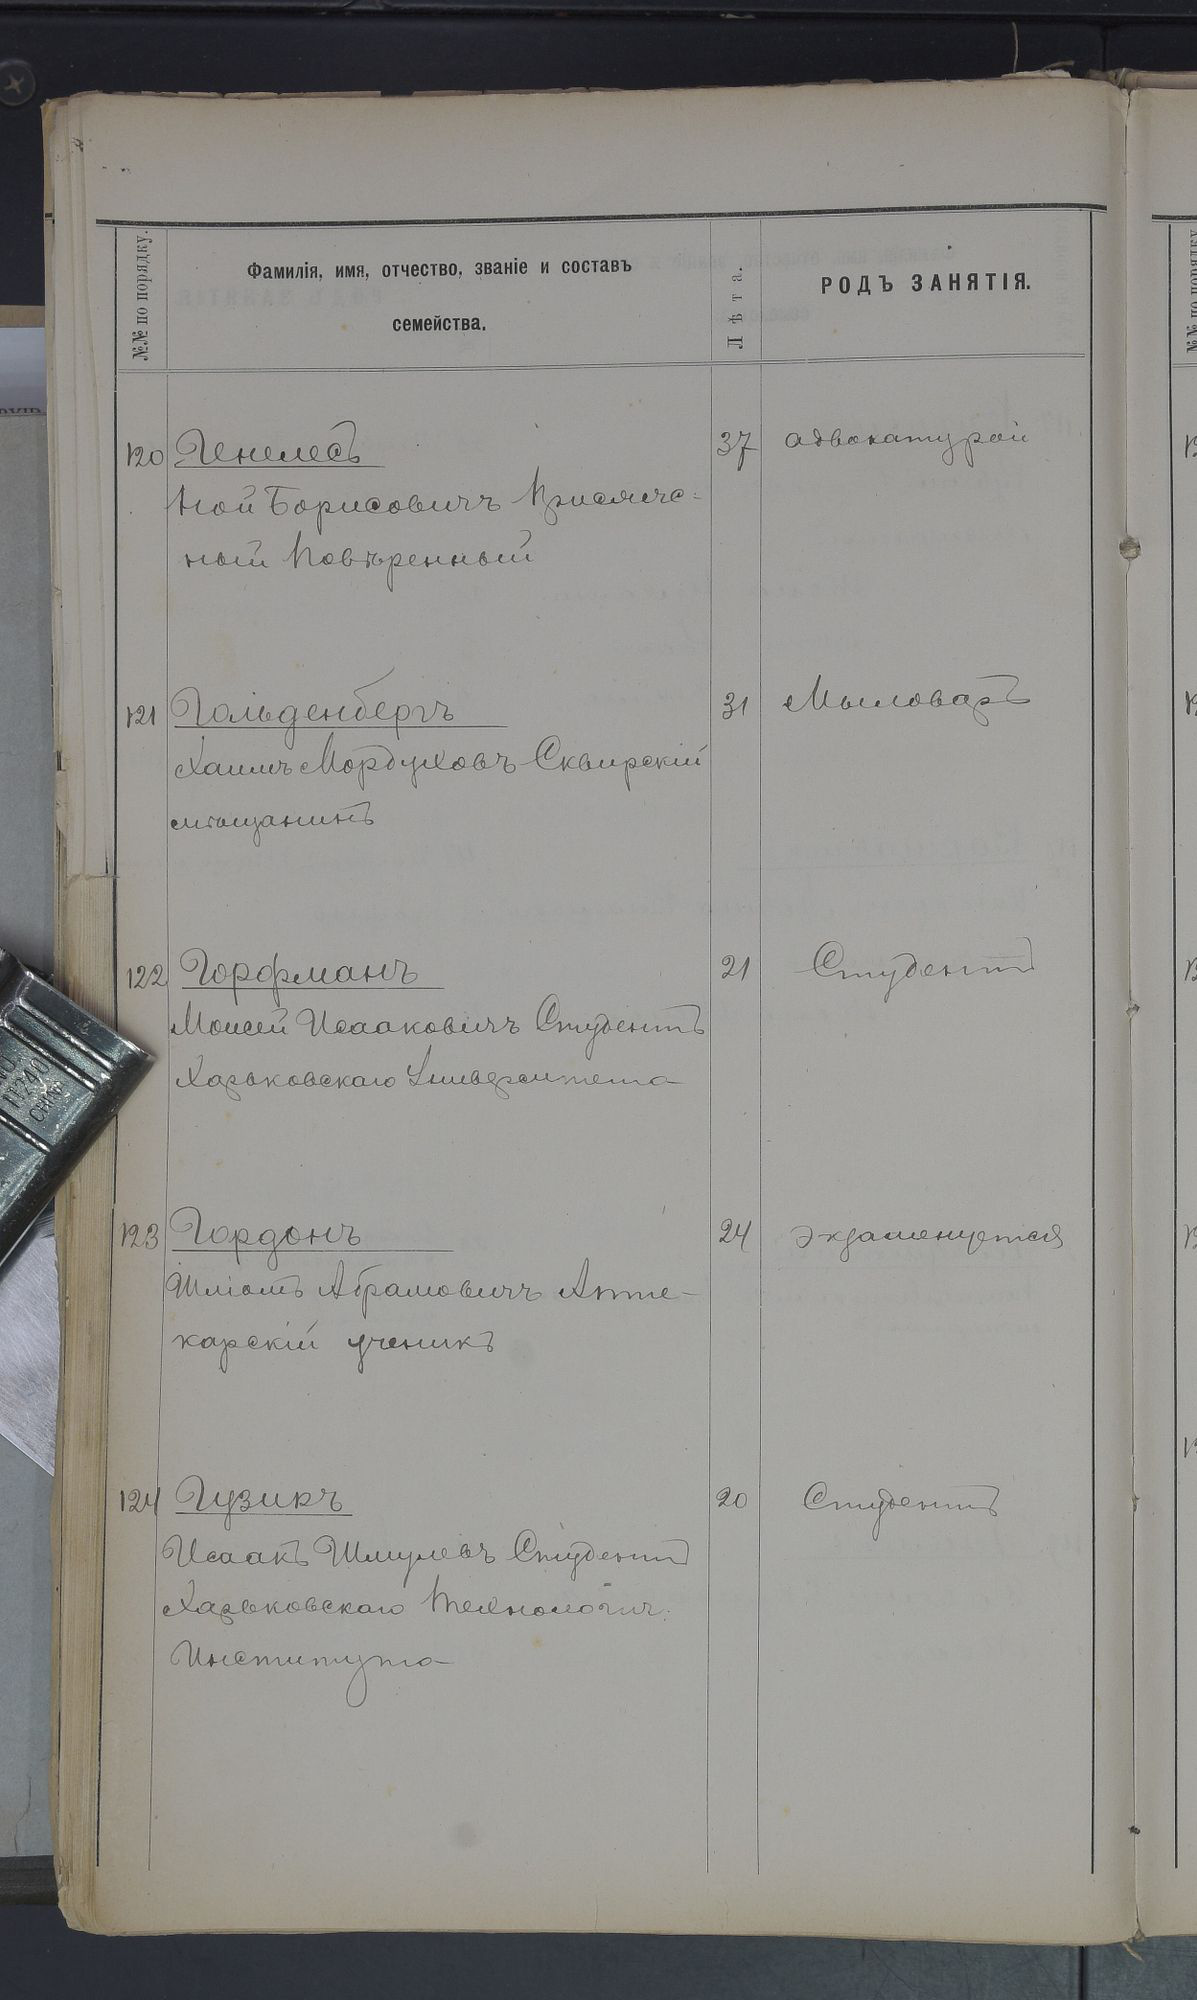 №№ по порядку.
Фамилія, имя, отчество, званіе и составъ
семейства.
Лѣта.
РОДЪ ЗАНЯТІЯ.
120 Генелесъ 37 адвокатурой
Ной Борисовичъ Присяж-
ный Повѣренный
121 Гольденбергъ 31 Мыловаръ
Хаимъ Мордуховъ Сквирскій
мѣщанинъ
122 Горфманъ 21 Студентъ
Моисей Исааковичъ Студентъ
Харьковскаго Университета
123 Гордонъ 24 экзаменуется
Абрамовичъ Апте-
карскій ученикъ
124 Гузикъ 20 Студентъ
Исаакъ Шмулевъ Студентъ
Харьковскаго Технологич.
Института
11240
CHINA